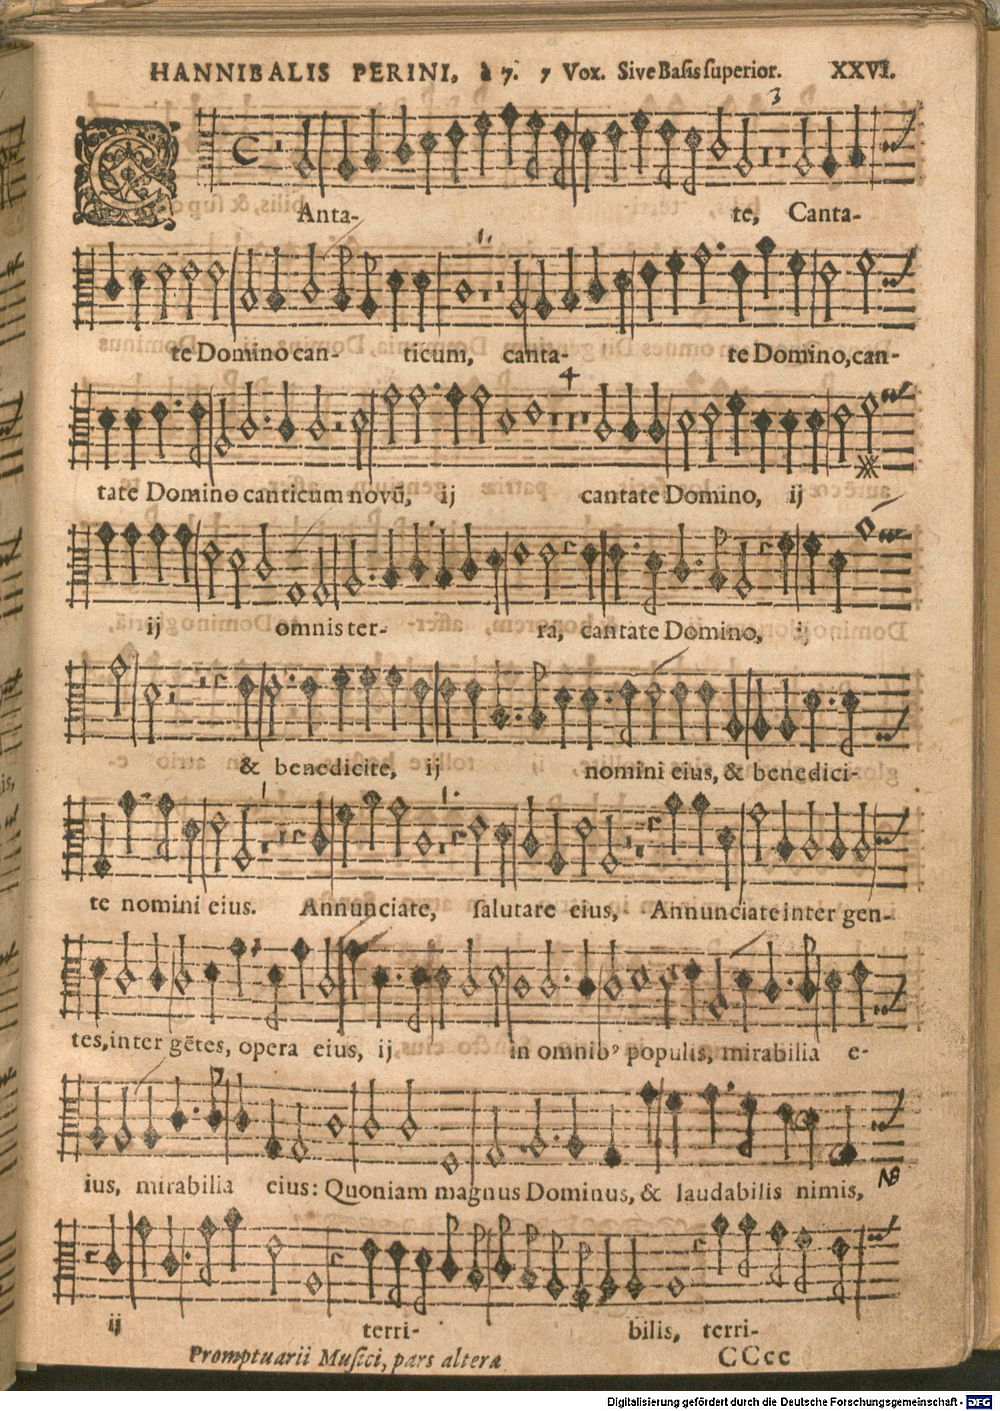 HANNIBALIS PERINI, à 7. 7 Vox. Sive Basis superior. XXVI.
3
CAnta- te, Canta-
te Domino can- ticum, canta- te Domino, can-
4
tate Domino canticum novū, ij cantate Domino, ij
ij omnis ter- ra, cantate Domino, ij
& benedicite, ij nomini eius, & benedici-
te nomini eius. Annunciate, salutare eius, Annunciate inter gen-
tes, inter gētes, opera eius, ij in omnibꝰ populis, mirabilia e-
ius, mirabilia eius: Quoniam magnus Dominus, & laudabilis nimis,
NB
ij terri- bilis, terri-
Promptuarii Musici, pars altera CCcc
Digitalisierung gefördert durch die Deutsche Forschungsgemeinschaft - DFG